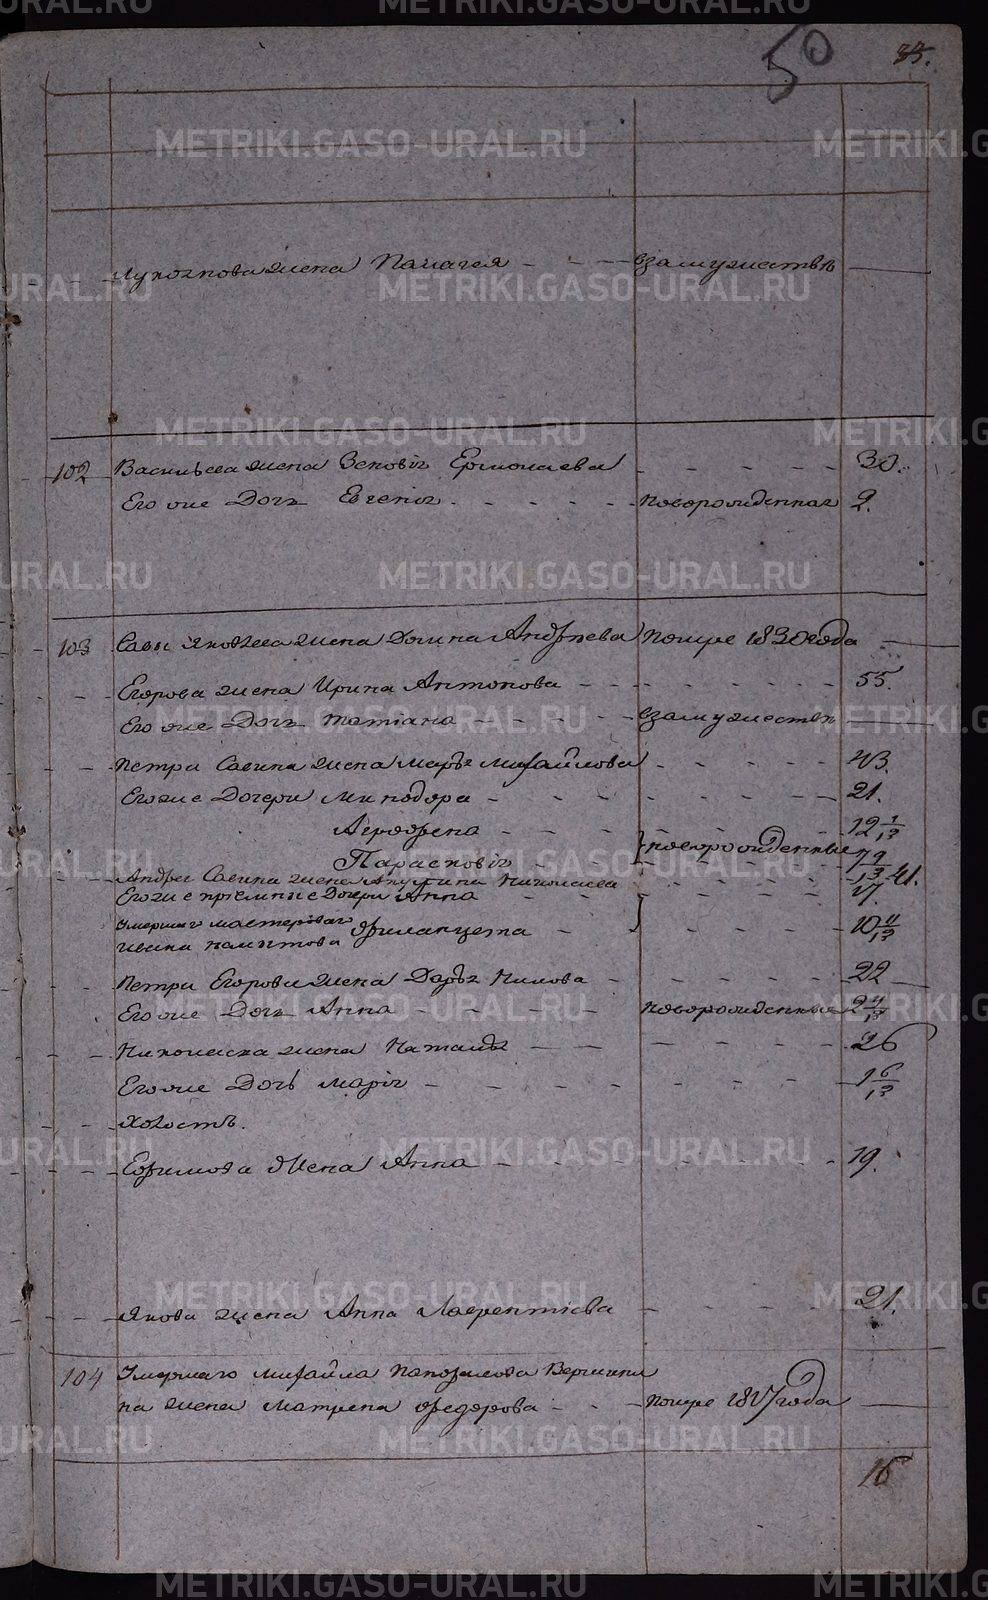 50
33.
Лукояноважена Палагея - - - взамужествѣ
102 Васильева жена Зеновія Ермолаева - - - - - 30.
Его же Дочь Евгенія - - - - - новорожденная 2.
103 Савы Яковлева жена Домна Андреева Помре 1830 года
Егорова жена Ирина Антонова - - - - - - - 55.
Его же Дочь татіана - - - - - взамужествѣ
Петра Савина жена марья михайлова - - - - - 43.
Егоже Дочери минодора - - - - - - - - 21.
Агрофена - - - - - 12 1/12
Парасковія - новорожденные
Андрея Савина жена Николаева 41.
Егоже пріемные Дочери Анна - - - - 17.
Умершаго мастероваго
филанцета - - - - - - 10 11/12
Петра Егорова жена Дарья Нилова - - - - - 22
Его же Дочь Анна - - - - - новорожденные
Николаева жена Наталья - - - - - - 26
Егоже Дочь марія - - - - - - - -
холостъ.
Ефимова жена Анна - - - - - - - - 19.
Якова жена Анна Лаврентіева - - - - - 21.
104 Умершаго михайла Панфилова Вершини
на жена матрена федорова - - - Помре 1817 года
16
METRIKI.GASO-URAL.RU